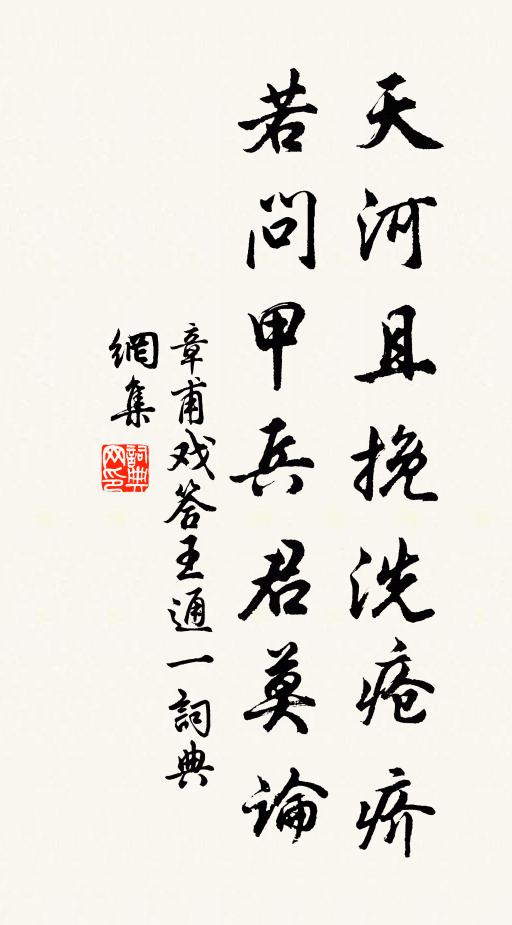 天河且挽洗疮疥
若问甲兵君莫论
章甫戏答王通一詞典
網集
詞典网印